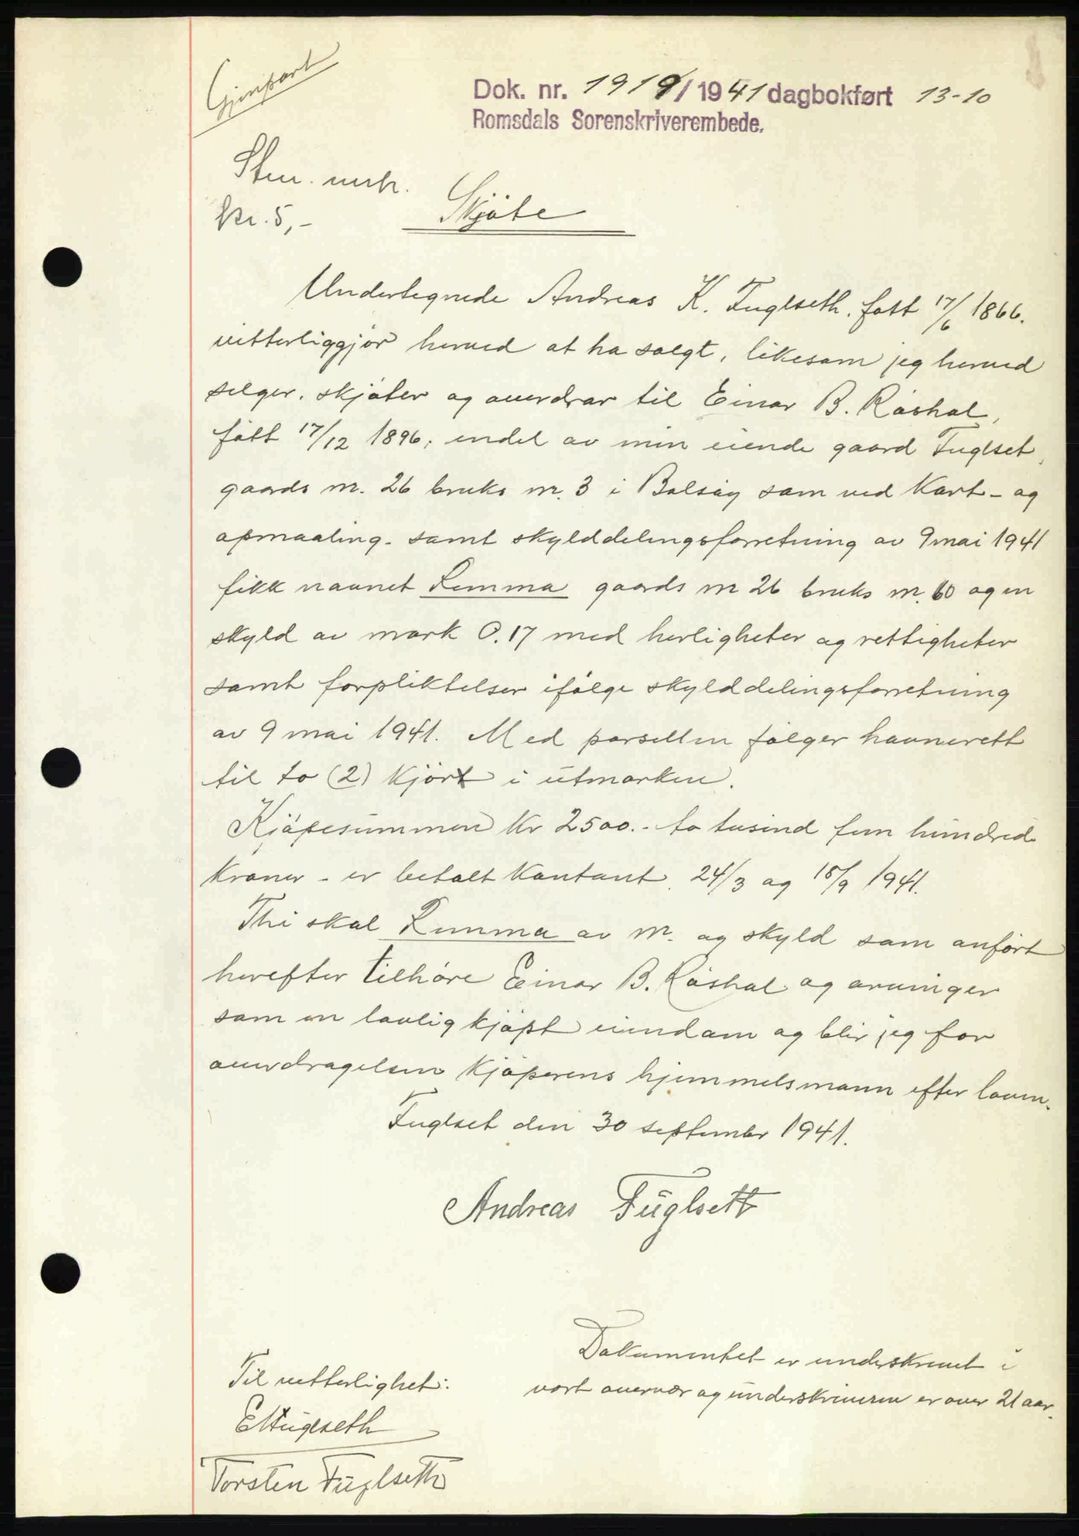 Gjenpart
Dok. nr. 1919/1941 dagbokført 13-10
Romsdals Sorenskriverembede.
Stem. merk.
kr. 5,-
Skjøte
Undertegnede Andreas K. Fuglseth. født 17/6 1866.
vitterliggjør herved at ha solgt, likesom jeg herved
selger. skjøter og overdrar til Einar B. Røshol,
født 17/12 1896; endel av min eiende gaard Fuglset,
gaards nr. 26 bruks nr. 3 i Bolsøy som ved Kart- og
opmaaling- samt skylddelingsforretning av 9 mai 1941
fikk navnet Lemma gaards nr 26 bruks nr. 60 og en
skyld av mark 0.17 med herligheter og rettigheter
samt forpliktelser ifølge skylddelingsforretning
av 9 mai 1941. Med parsellen følger havnerett
til to (2) kjørt i utmarken.
Kjøpesummen kr 2500.- to tusind fem hundred
kroner - er betalt kontant. 24/3 og 18/9 1941.
Thi skal av nr. og skyld som anført
herefter tilhøre Einar B. Røshol og arvinger
som en lovlig kjøpt eiendom og blir jeg for
overdragelsen kjøperens hjemmelsmann efter loven.
Fuglset den 30 september 1941.
Andreas Fuglseth
Dokumentet er underskrevet i
vort overvær og underskriveren er over 21 aar.
Til vetterlighet:
E Fuglseth
Torsten Fuglseth